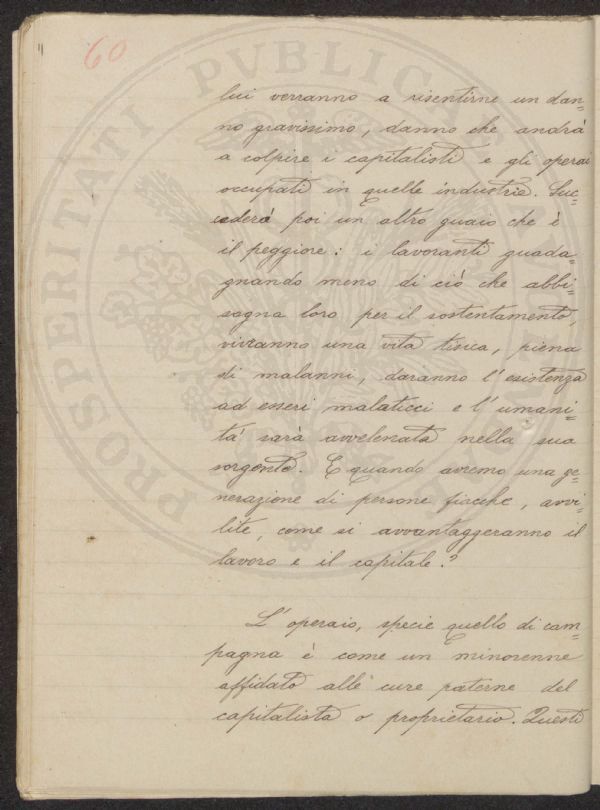 60
PROSPERITATI PVBLICAE
lui verranno a risentirne un dan=
no gravissimo, danno che andrà
a colpire i capitalisti e gli operai
occupati in quelle industrie. Suc=
cederà poi un altro guaio che è
il peggiore: i lavoranti guada=
gnando meno di ciò che abbi=
sogna loro per il sostentamento,
vivranno una vita tisica, piena
di malanni, daranno l'esistenza
ad esseri malaticci e l'umani=
tà sarà avvelenata nella sua
sorgente. E quando avremo una ge=
nerazione di persone fiacche, avvi=
lite, come si avvantaggeranno il
lavoro e il capitale?
L'operaio, specie quello di cam=
pagna è come un minorenne
affidato alle cure paterne del
capitalista o proprietario. Questi